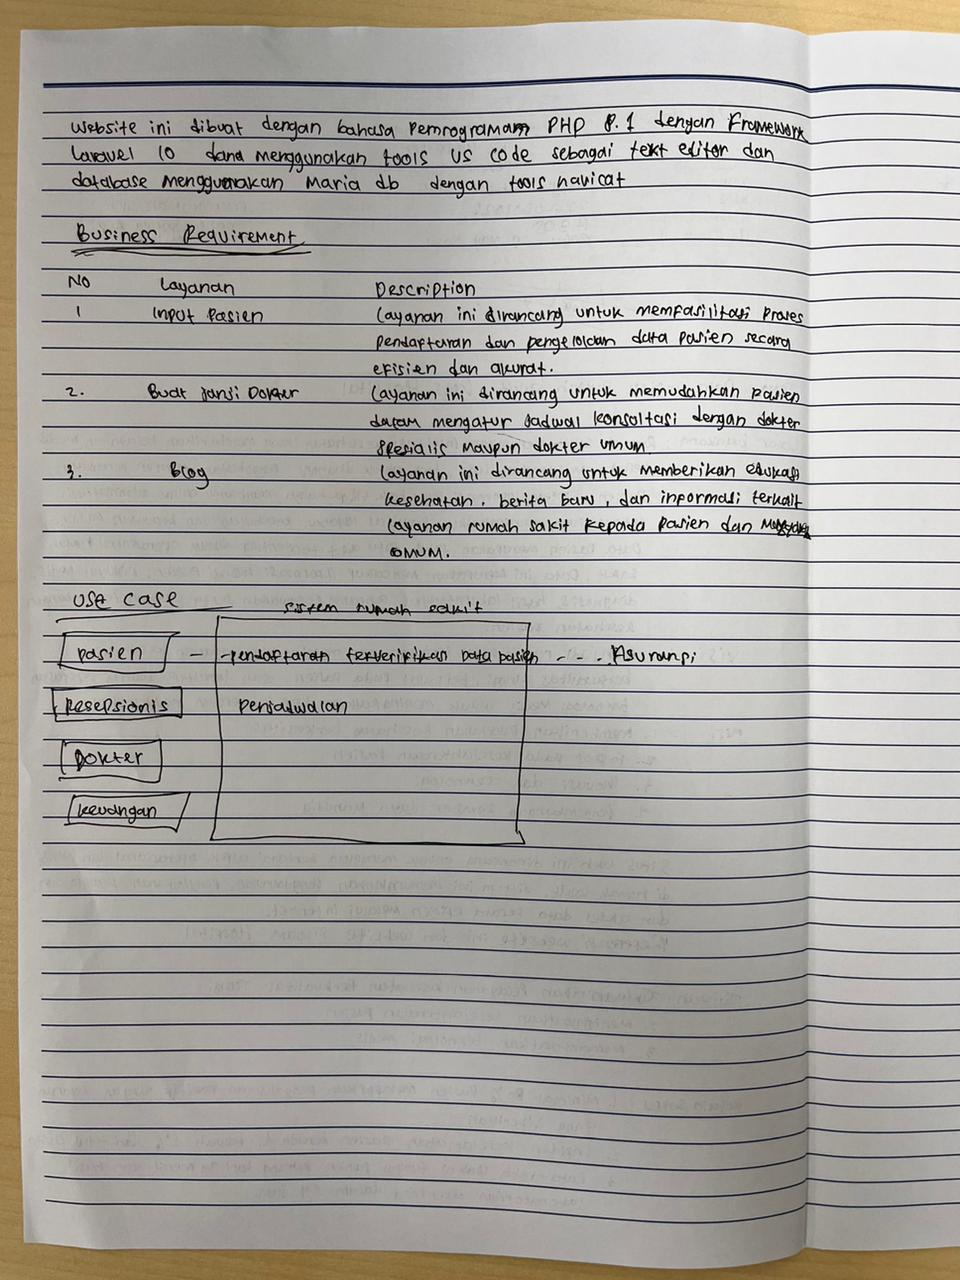 Website ini dibuat dengan bahasa Pemrograman PHP 8.1 dengan Framework
Laravel 10 dana menggunakan tools VS Code sebagai text editor dan
database menggunakan Maria db dengan tools navicat
Business Requirement
NO Layanan Description
1 Input Pasien Layanan ini dirancang untuk memfasilitasi Proses
pendaftaran dan pengelolaan data pasien secara
efisien dan akurat.
2. Buat Janji Dokter Layanan ini dirancang untuk memudahkan pasien
dalam mengatur Jadwal konsultasi dengan dokter
spesialis maupun dokter umum
3. Blog Layanan ini dirancang untuk memberikan edukasi
kesehatan, berita baru, dan informasi terkait
Layanan rumah sakit kepada pasien dan
umum.
Use Case
sistem rumah sakit
Pasien - - pendaftaran terverifikasi Data pasien - - - Asuransi
Resepsionis Penjadwalan
Dokter
Keuangan